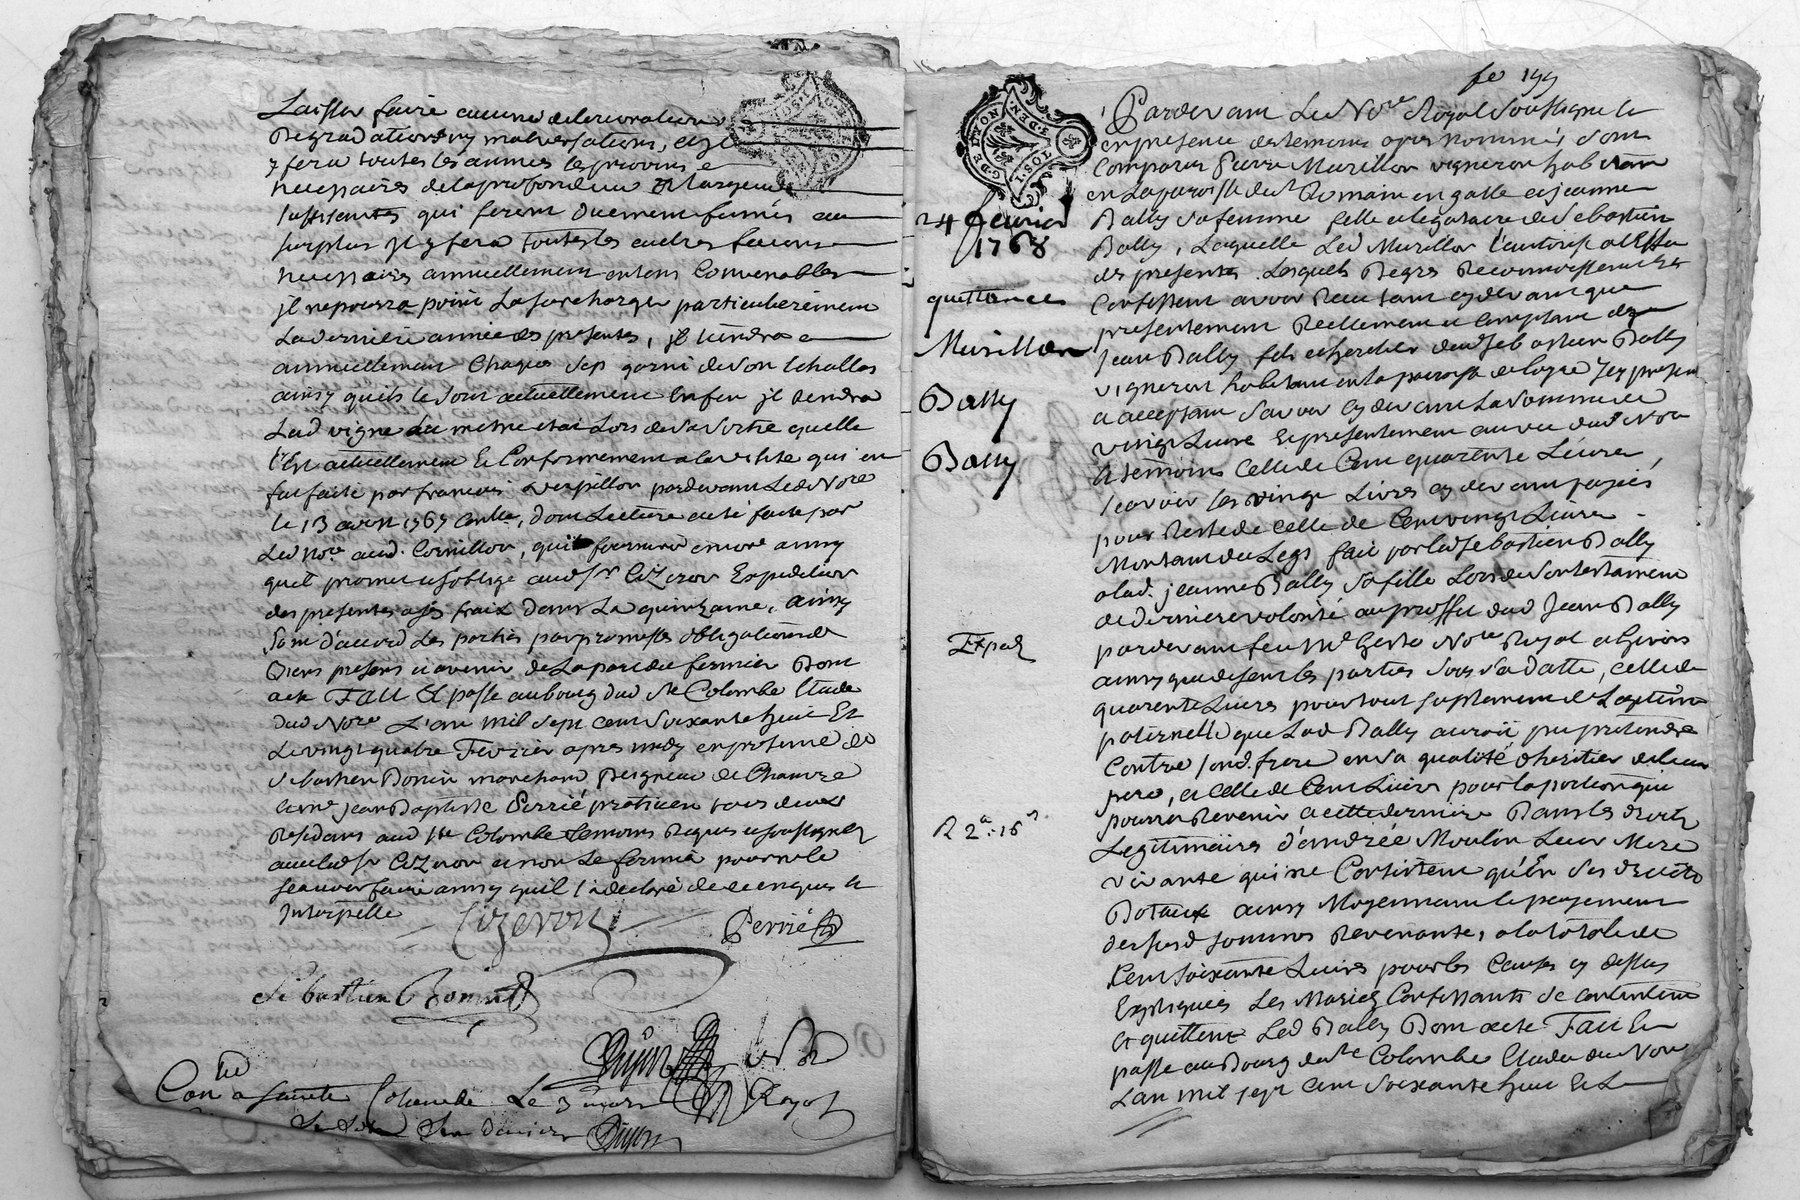 Laisser faire aucune deterioration
Degradation ny malversations, et y
y fera toutes les années les provins
necessaires de la profondeur et largeur
suffisantes qui seront duement fumés au
surplus il y fera toutes les autres façons
necessaires annuellement en tems Convenables
il ne pourra point La surcharger particulierement
La derniere année des presentes, il tiendra
annuellement Chaque Sep garni de son Echallas
ainsy quils le sont actuellement Enfin il rendra
Lad vigne au meme etat Lors de sa sortie quelle
l'Est actuellement Et Conformement a la visite qui en
fut faite par françois pardevant Led Nore
le 13 avril 1767 Contlé, dont Lecture a eté faite par
Led Nore aud. Cornillon, quil
quil promet et s'oblige aud Sr Cizeron Expedition
des presentes a ses fraix Dans La quinzaine, ainsy
sont d'accord Les parties par promesses obligations de
Biens presens et avenir de La part du fermier Dont
acte Fait Et passé au bourg dud Ste Colombe Etude
dud Nore L'an mil sept cent soixante huit Et
Le vingt quatre Fevrier apres midy en presence de
Sebastien Bonin marchand Peigneur de Chanvre
et me jean Baptiste Perrié praticien tous deux
Residans aud Ste Colombe temoins Requis et soussignés
avec led Sr Cizeron et non Le fermier pour ne le
sçavoir faire ainsy quil l'a declaré de ce enquis et
Interpellé
Cizeron
Perrié
Sebastien Bonin
Nore
Royal
Conlle a Sainte Colombe Le 3 mars
GDE LYON
DEN. 1 SOL
fo 199
24 fevrier
1768
quittance
Murillon
Bally
Bally
Exped
Pardevant Led Nore Royal soussigné et
en presence des temoins apres nommés sont
Comparus Pierre Murillon vigneron habitant
en La paroisse de St Romain en galle et jeanne
Bally sa femme fille et legataire de Sebastien
Bally, Laquelle Led Murillon l'autorise a l'Effet
des presentes Lesquels Degrés Reconnoissent et
Confessent avoir Reçu tant cy devant que
presentement Reellement et Comptant de
Jean Bally fils et heritier dud Sebastien Bally
vigneron habitant en la paroisse de loyre Icy present
et acceptant Savoir cy devant La somme de
vingt Livres Et presentement au vu dud Nore
et temoins Celle de Cent quarente Livres,
sçavoir les vingt Livres cy devant payés
pour Reste de celle de Cent vingt Livres
Montant du Legs fait par led Sebastien Bally
a lad. jeanne Bally sa fille Lors de son testament
de derniere volonté au proffit dud Jean Bally
pardevant feu Me Nore Royal a Givors
ainsy que disent les parties sous sa datte, celle de
quarente Livres pour tout suplement de Legitime
paternelle que Lad Bally auroit pu pretendre
Contre sond. frere en sa qualité d'heritier de leur
pere, et Celle de Cent Livres pour la portion qui
pourra Revenir a cette derniere Dans les droits
Legitimaires d'andrée Moulin Leur Mere
vivante qui ne Consistent qu'En ses droits
Dotaux ainsy Moyennant le payement
desusd sommes Revenantes, a la totale de
Cent soixante Livres pour les Causes cy dessus
Expliquées Les Mariés Confessants se contentent
et quittent Led Bally Dont acte Fait Et
passé au Bourg de Ste Colombe Etude du Nore
L'an mil sept cent soixante huit Et Le